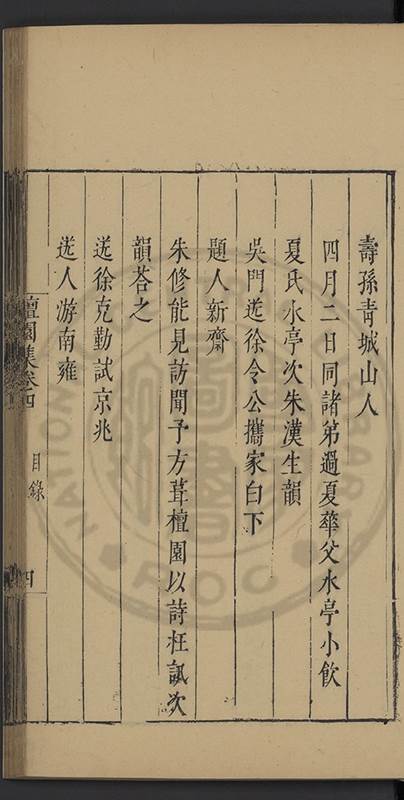 壽孫青城山人
四月二日同諸弟過夏華父水亭小飲
夏氏水亭次朱漢生韻
吳門送徐令公攜家白下
題人新齋
朱修能見訪聞予方葺檀園以詩枉諷次
韻荅之
送徐克勤試京兆
送人游南雍
檀園集卷四
目錄
四